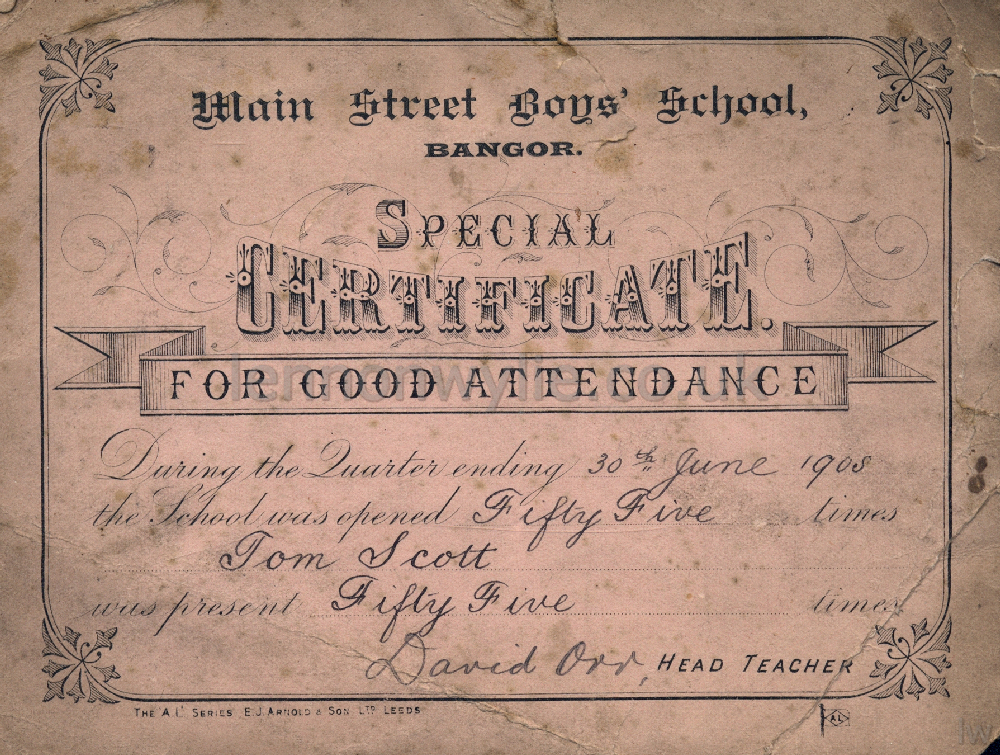 Main Street Boys' School,
BANGOR.
SPECIAL
CERTIFICATE.
FOR GOOD ATTENDANCE
lennonwylie.co.uk
During the Quarter ending 30th June 1908
the School was opened Fifty Five times
Tom Scott
was present Fifty Five times
David Orr, HEAD TEACHER
THE A.L. SERIES E.J. ARNOLD & SON LTD LEEDS
AL